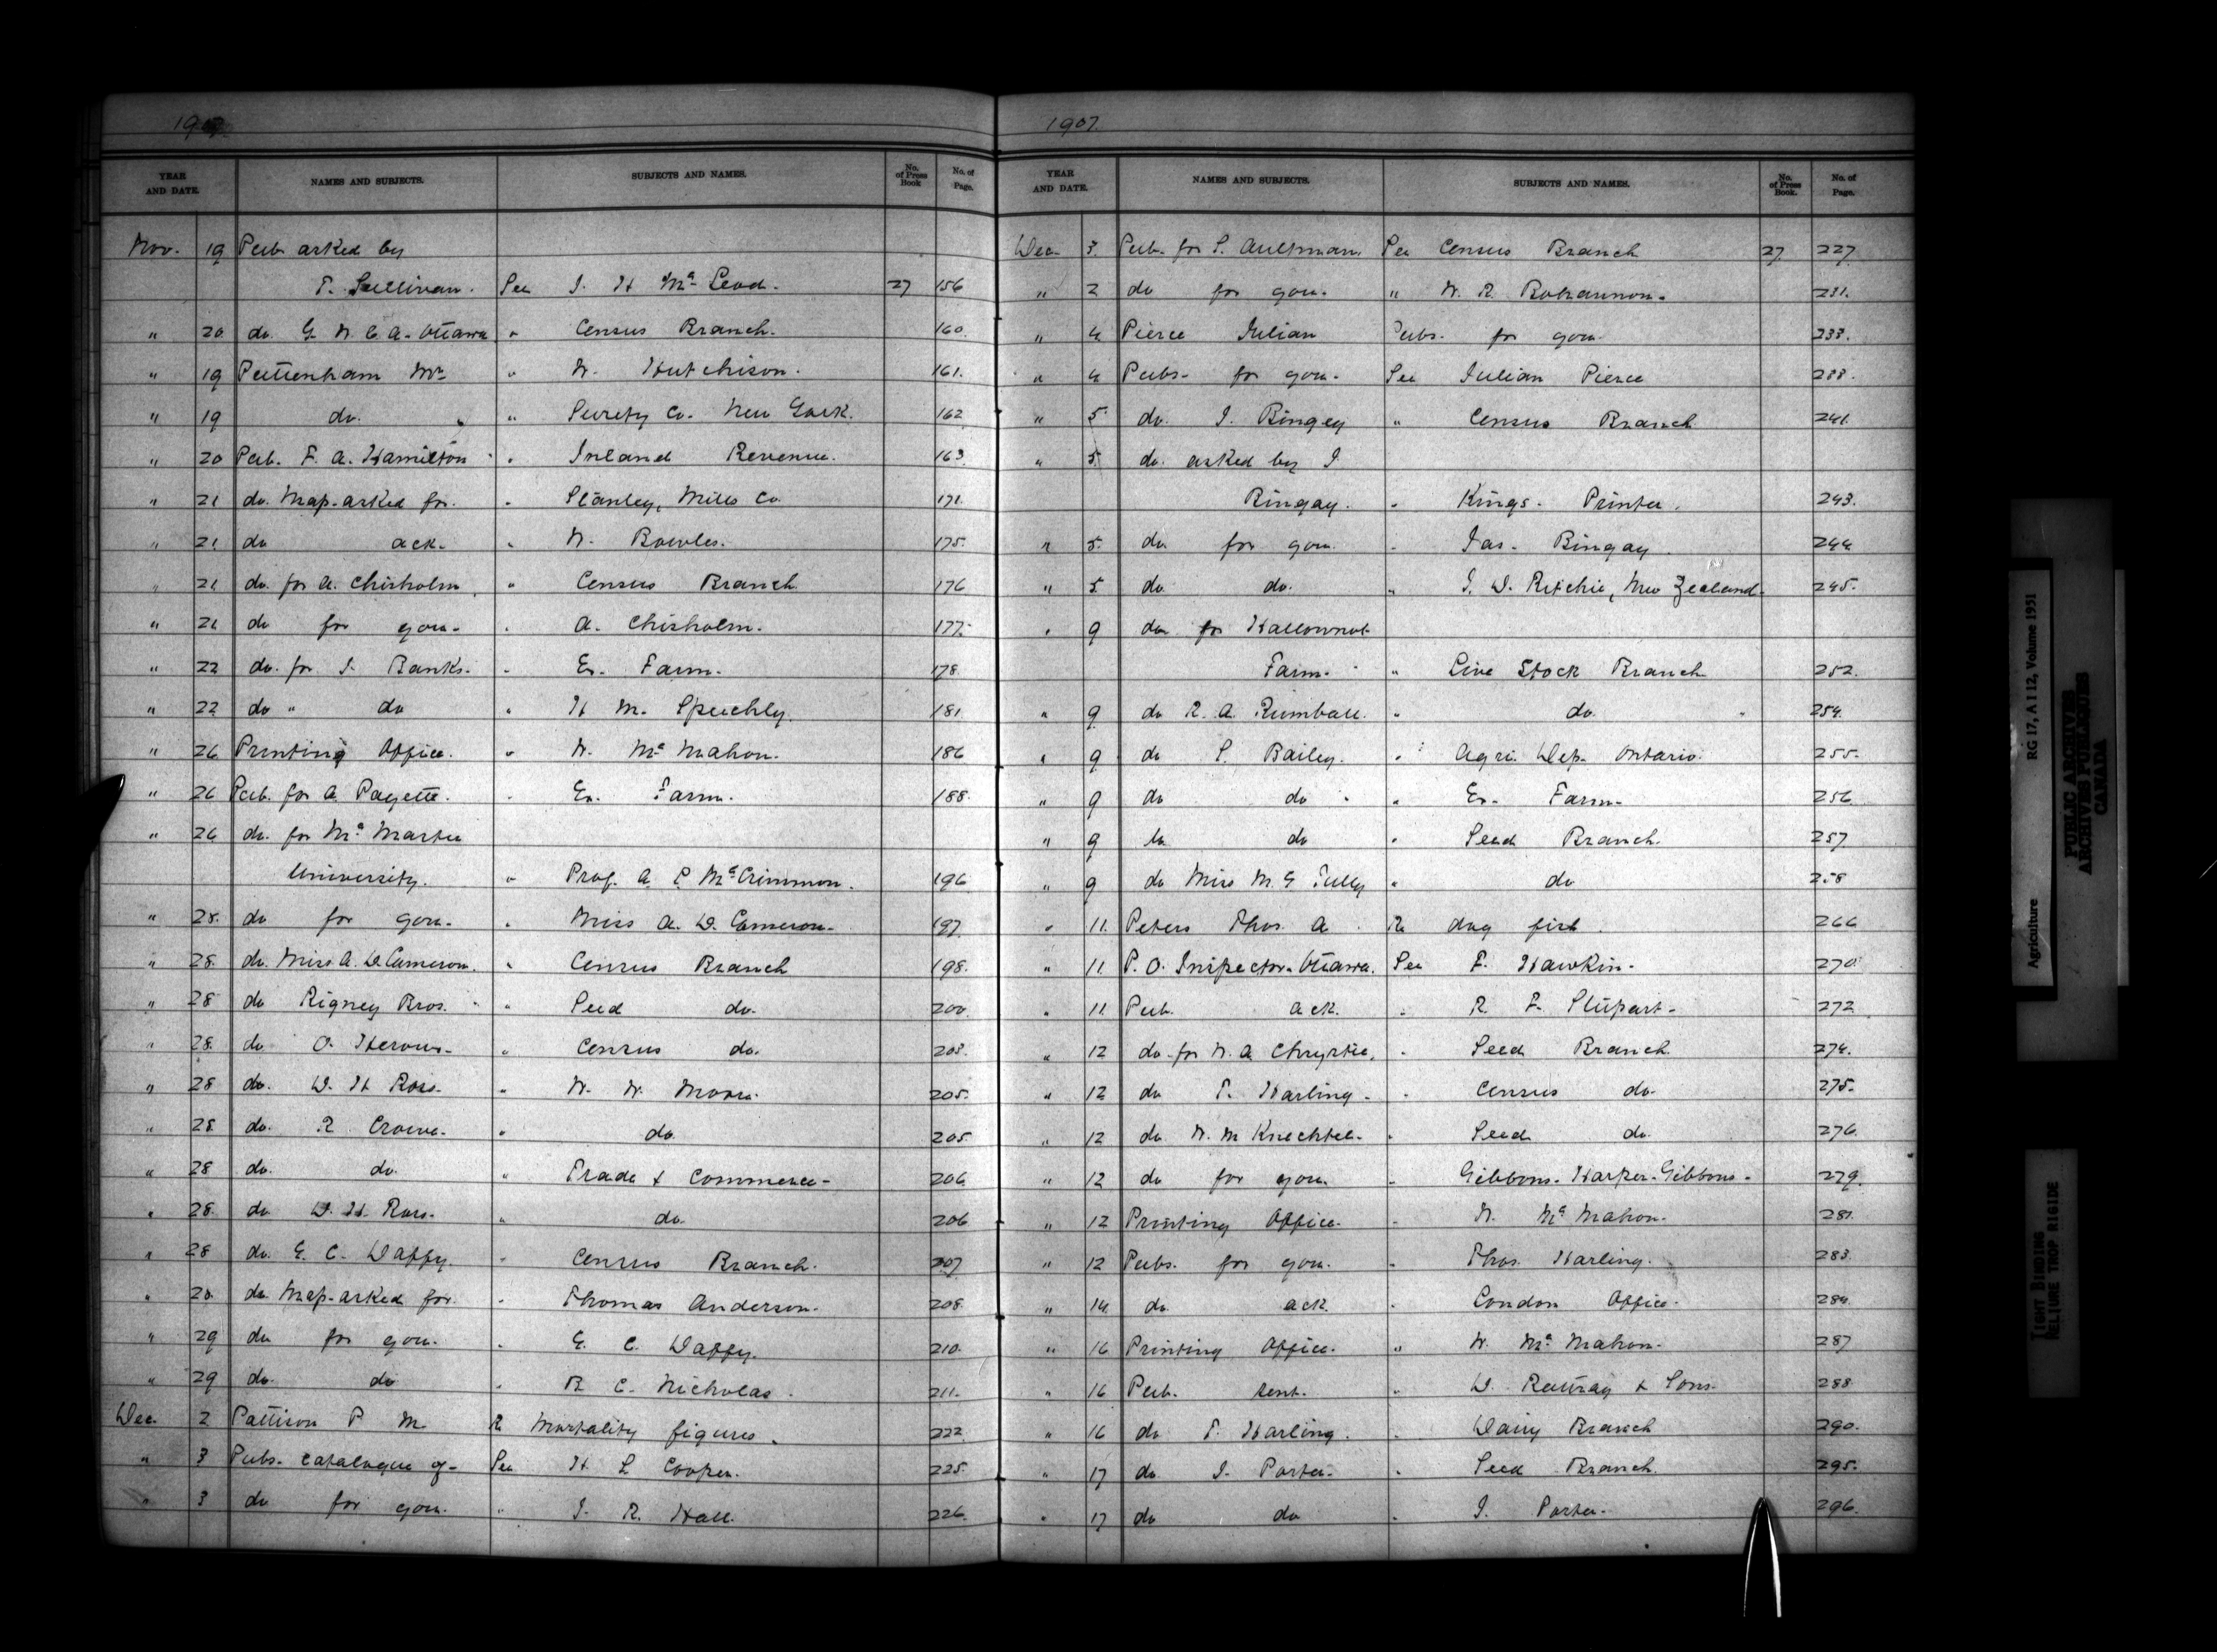 1907
YEAR AND DATE. NAMES AND SUBJECTS. SUBJECTS AND NAMES. No. of Press Book No. of Page.
Nov. 19 Pub asked by
T. Sullivan. See J. H McLeod. 27 156
" 20 do. G. N. C. A. Ottawa " Census Branch. 160.
" 19 Puttenham Mr " W. Hutchison. 161.
" 19 do. " Surety Co. New York. 162
" 20 Pub. F. A. Hamilton " Inland Revenue. 163
" 21 do. Map-asked for. " Stanley, Mills Co 171.
" 21 do ack. " W. Bowles. 175.
" 21 do. for A. Chisholm " Census Branch 176
" 21 do for gou. " A. Chisholm. 177.
" 22 do. for J. Banks. " Ex. Farm. 178.
" 22 do " do " H M. Speechly. 181.
" 26 Printing Office. " W. McMahon. 186
" 26 Pub. for A. Payette. " Ex. Farm. 188.
" 26 do. for McMaster
University. " Prof. A. P. McCrimmon. 196
" 28. do for gou. " Miss A. D. Cameron. 197.
" 28. do. Miss A. D Cameron. " Census Branch 198.
" 28 do Rigney Bros. " Seed do. 200.
" 28. do O. Heroux. " Census do. 203.
" 28 do. D. H Ross. " W. W. Moore. 205.
" 28 do. R Crowe. " do 205
" 28 do. do. " Trade & Commerce. 206
" 28. do D. H. Ross. " do. 206
" 28 do. E. C. Daffy. " Census Branch. 207
" 28 do. Map-asked for. " Thomas Anderson. 208.
" 29 do for gou. " E. C. Daffy. 210.
" 29 do. do " R C. Nicholas. 211.
Dec. 2 Pattison P M Re Mortality figures. 222
" 3 Pubs. catalogue of- See H L Cooper. 225.
" 3 do for gou. " J. R. Hall. 226.
1907.
YEAR AND DATE. NAMES AND SUBJECTS. SUBJECTS AND NAMES. No. of Press Book. No. of Page.
Dec. 3. Pub. for S. Aultman. See Census Branch 27. 227.
" 2 do for gou. " W. R. Bohannon. 231.
" 4 Pierce Julian Pubs. for gou. 233.
" 4 Pubs. for gou. See Julian Pierce 233.
" 5 do. J. Bingey " Census Branch. 241.
" 5. do. asked by J.
Bingay. " Kings. Printer. 243.
" 5. do for gou. " Jas. Bingay. 244
" 5 do do. " J. D. Ritchie, New Zealand. 245.
" 9 do for Hallownut
Farm. " Live Stock Branch 252.
" 9 do R. A. Rumball. " do. 254.
" 9 do S. Bailey. " Agri. Dep. Ontario. 255.
" 9 do do " Ex. Farm. 256
" 9 do do " Seed Branch. 257
" 9 do Miss M. G Tully " do 258
" 11. Peters Thos. A. Re dog fish. 266
" 11 P. O. Inspector. Ottawa. See F. Hawkin. 270
" 11 Pub. ack. " R. F. Stupart. 272
" 12 do. for W. A. Chrystie. " Seed Branch 274.
" 12 do T. Harling. " Census do. 275.
" 12 do W. M Knechtel. " Seed do. 276.
" 12 do for gou. " Gibbons. Harper. Gibbons. 279.
" 12 Printing Office. " W. McMahon. 281.
" 12 Pubs. for gou. " Thos. Harling. 283.
" 14 do. ack. " London Office. 284.
" 16 Printing Office. " W. McMahon. 287
" 16 Pub. sent. " D. Rattray & Sons. 288
" 16 do T. Harling. " Dairy Branch 290.
" 17 do J. Porter. " Seed Branch. 295.
" 17 do do " J. Porter. 296.
Agriculture RG 17, A I 12, Volume 1951
PUBLIC ARCHIVES
ARCHIVES PUBLIQUES
CANADA
TIGHT BINDING
RELIURE TROP RIGIDE